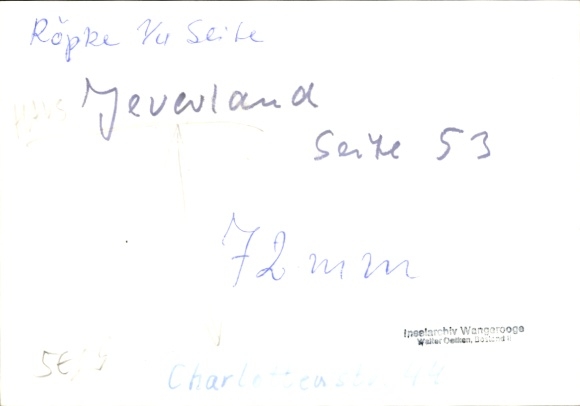 Röpke 1/4 Seite
Jeverland
Seite 53
72 mm
Inselarchiv Wangerooge
Walter Oetken,
Charlottenstr. 44